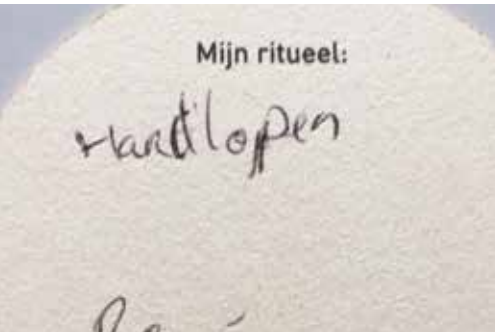 Mijn ritueel:
Hardlopen